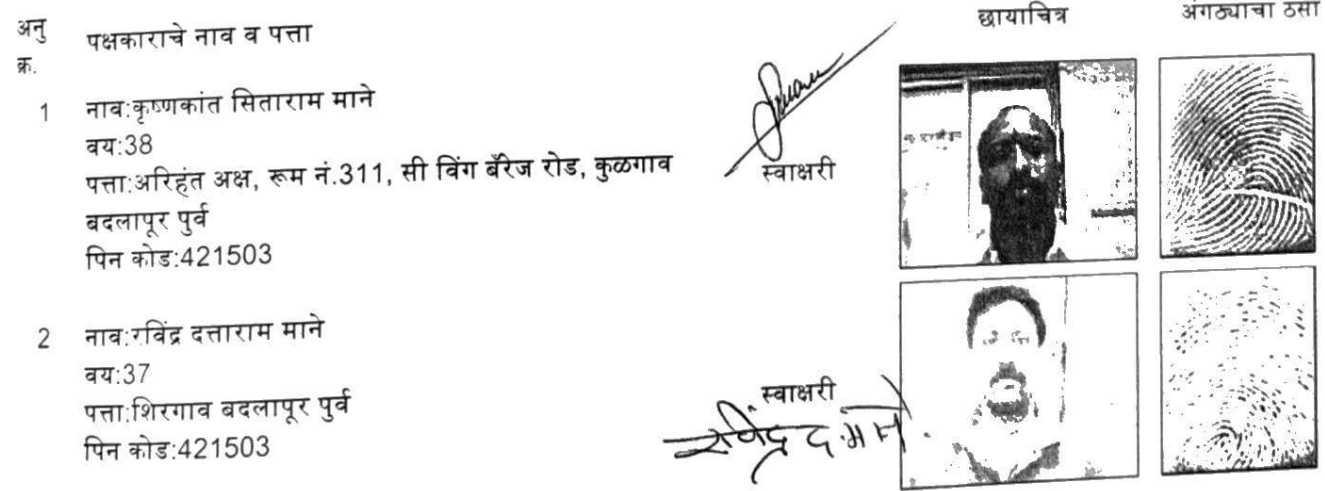 अनु क्र. पक्षकाराचे नाव व पत्ता छायाचित्र अंगठ्याचा ठसा
1 नाव:कृष्णकांत सिताराम माने
वय:38
पत्ता:अरिहंत अक्ष, रूम नं.311, सी विंग बॅरेज रोड, कुळगाव
बदलापूर पुर्व
पिन कोड:421503
स्वाक्षरी
2 नाव:रविंद्र दत्ताराम माने
वय:37
पत्ता:शिरगाव बदलापूर पुर्व
पिन कोड:421503
स्वाक्षरी
रविंद्र द. माने